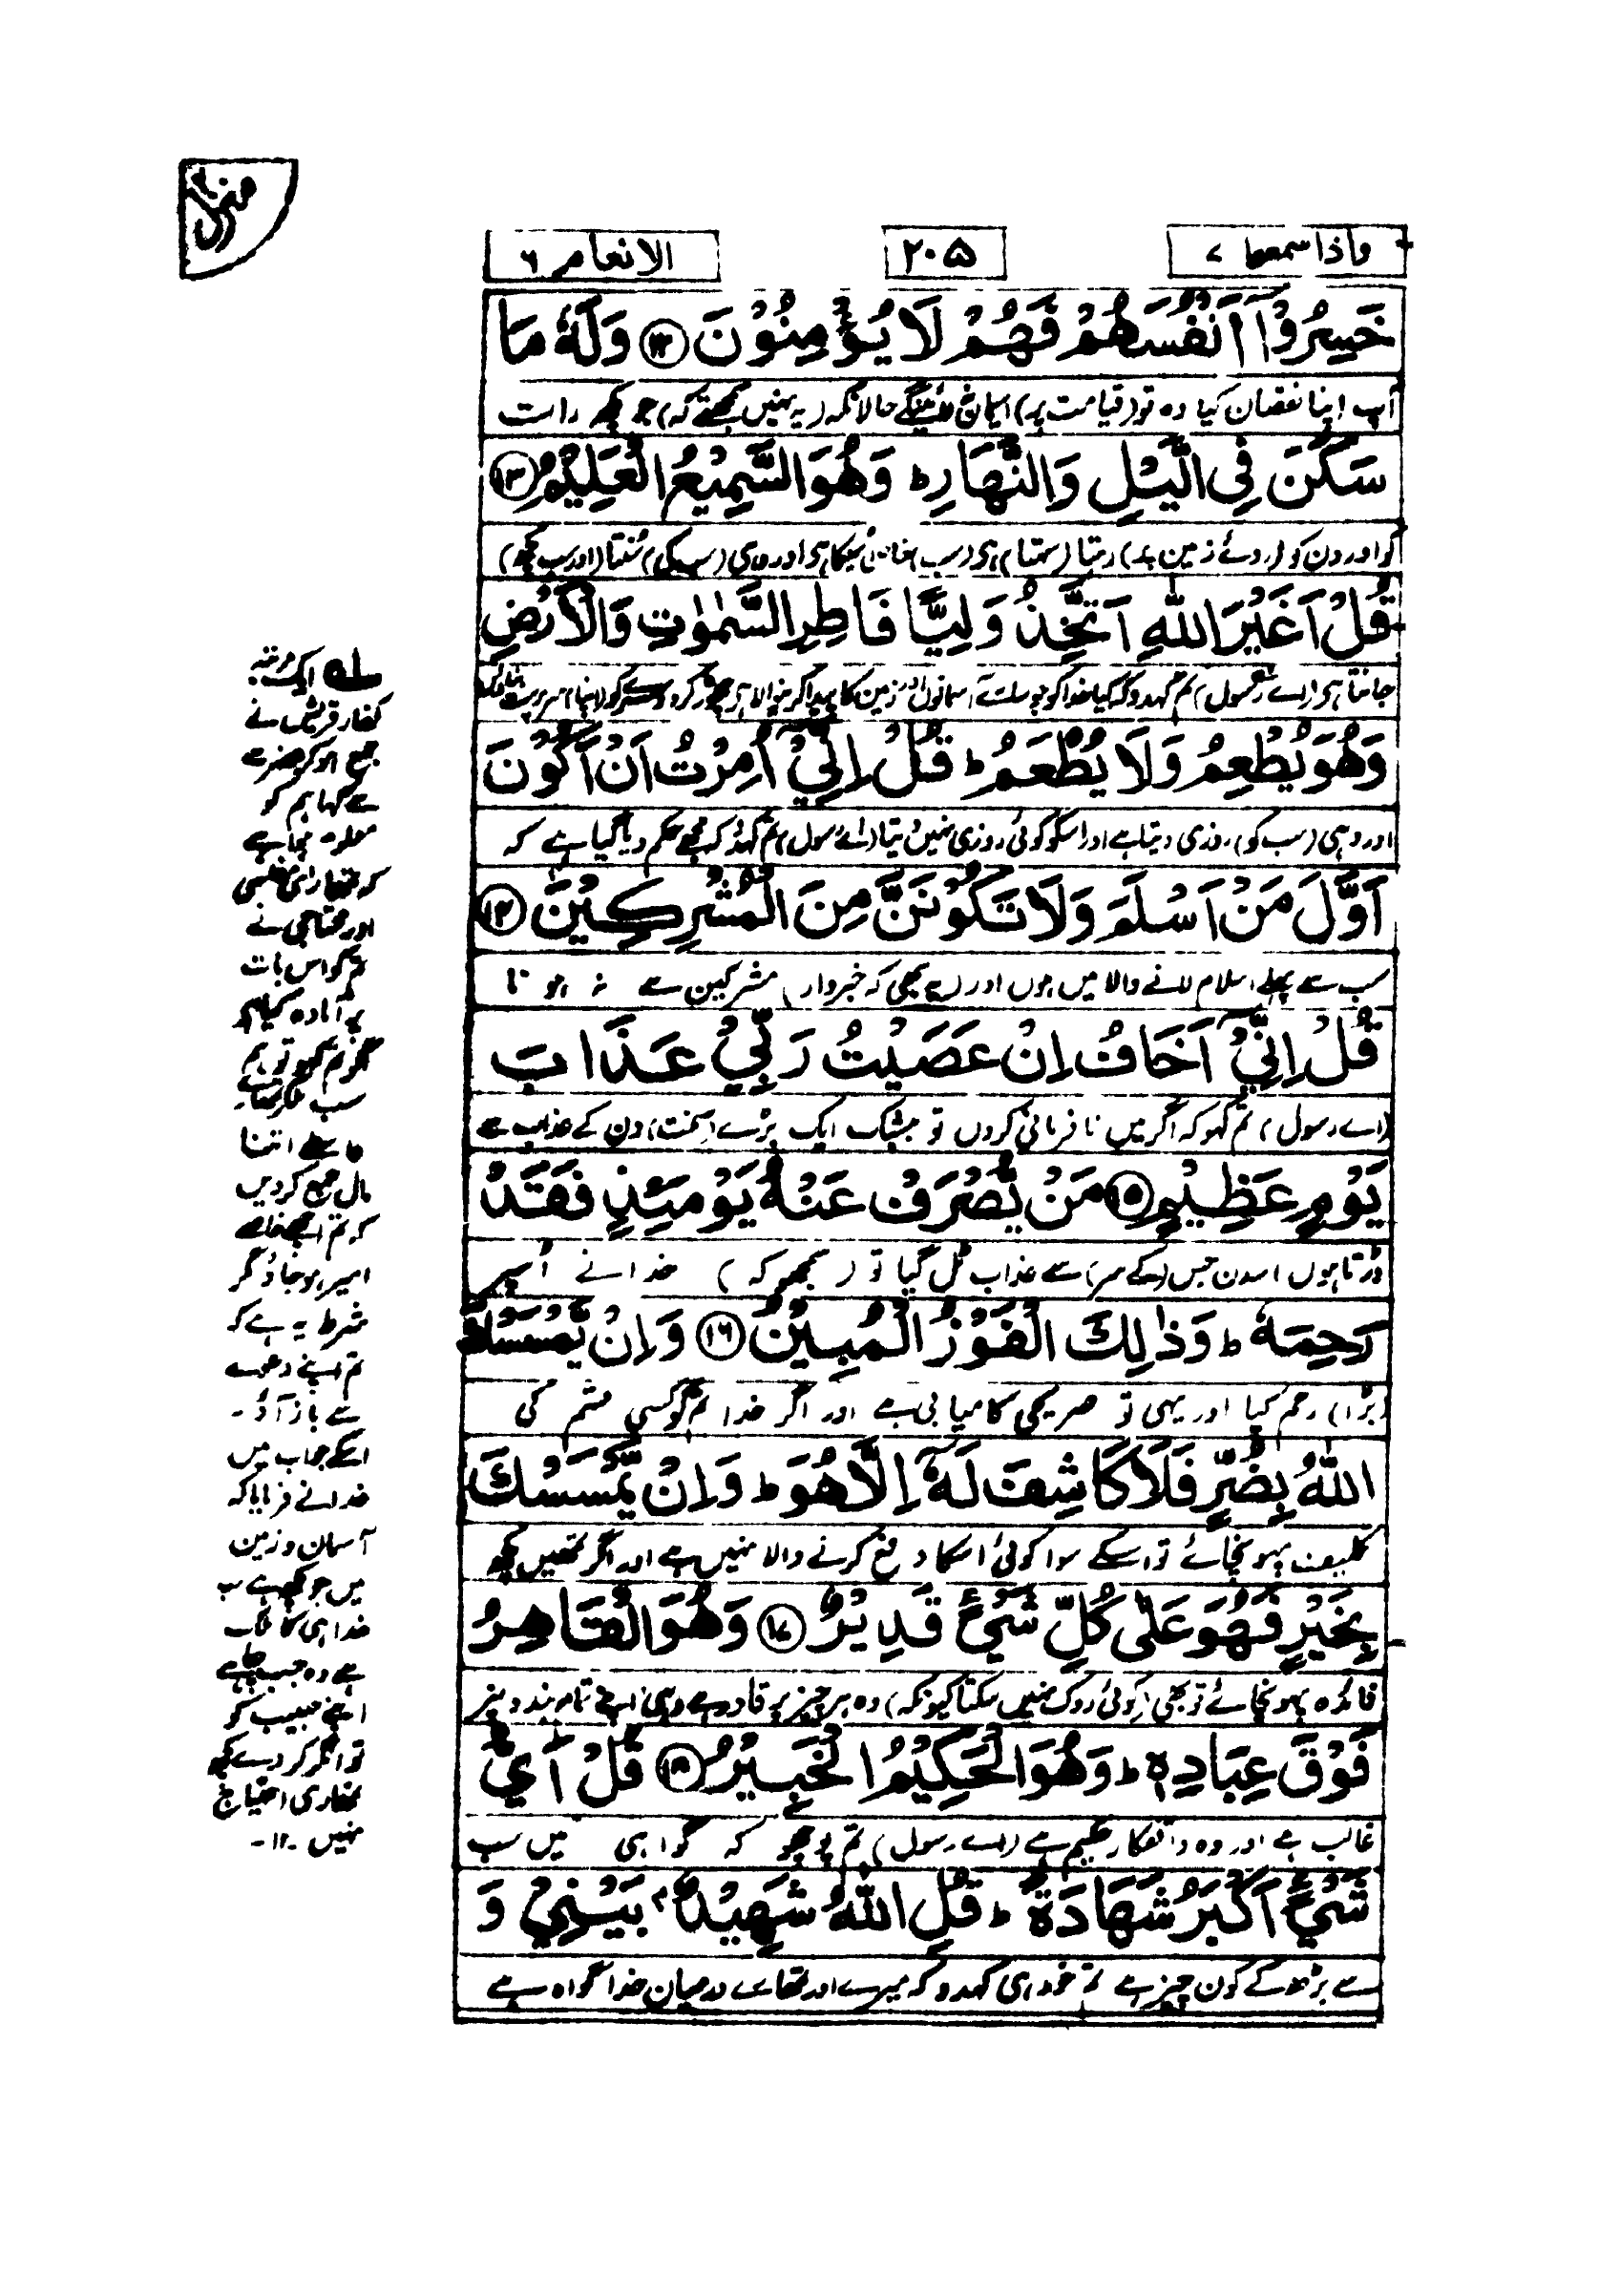 منزل۲
واذا سمعوا ۷
۲۰۵
الانعام ۶
خَسِرُوْۤا اَنْفُسَهُمْ فَهُمْ لَا يُؤْمِنُوْنَ ۝۱۲ وَلَهٗ مَا
آپ اپنا نقصان کیا وہ تو (قیامت پر) ایمان نہ لائینگے حالانکہ (یہ نہیں سمجھتے کہ) جو کچھ رات
سَكَنَ فِى الَّيْلِ وَالنَّهَارِ ؕ وَهُوَ السَّمِيْعُ الْعَلِيْمُ ۝۱۳
کو اور دن کو (روئے زمین پر) رہتا (سہتا) ہی (سب) خاص اسیکا ہی اور وہی (سب کی) سُنتا (اور سب کچھ)
قُلْ اَغَيْرَ اللّٰهِ اَتَّخِذُ وَلِيًّا فَاطِرِ السَّمٰوٰتِ وَالْاَرْضِ
جانتا ہی (اے رسول) تم کہدو کہ کیا خدا کو جو سات آسمانوں اور زمین کا پیدا کرنیوالا ہی چھوڑ کر دوسرے کو (اپنا) سرپرست بناؤں
وَهُوَ يُطْعِمُ وَلَا يُطْعَمُ ؕ قُلْ اِنِّىْۤ اُمِرْتُ اَنْ اَكُوْنَ
اور وہی (سب کو) روزی دیتا ہے اور اسکو کوئی روزی نہیں دیتا (اے رسول) تم کہدو کہ مجھے حکم دیا گیا ہے کہ
اَوَّلَ مَنْ اَسْلَمَ وَلَا تَكُوْنَنَّ مِنَ الْمُشْرِكِيْنَ ۝۱۴
سب سے پہلے اسلام لانے والا میں ہوں اور (یہ بھی کہ خبردار) مشرکین سے نہ ہونا
قُلْ اِنِّىْۤ اَخَافُ اِنْ عَصَيْتُ رَبِّىْ عَذَابَ
(اے رسول) تم کہو کہ اگر میں نافرمانی کروں تو بیشک ایک بڑے (سخت) دن کے عذاب سے
يَوْمٍ عَظِيْمٍ ۝۱۵ مَنْ يُّصْرَفْ عَنْهُ يَوْمَئِذٍ فَقَدْ
ڈرتا ہوں اسدن جس (کے سر) سے عذاب ٹل گیا تو (سمجھو کہ) خدا نے اُسپر
رَحِمَهٗ ؕ وَذٰلِكَ الْفَوْزُ الْمُبِيْنُ ۝۱۶ وَاِنْ يَّمْسَسْكَ
(بڑا) رحم کیا اور یہی تو صریحی کامیابی ہے اور اگر خدا تم کو کسی قسم کی
اللّٰهُ بِضُرٍّ فَلَا كَاشِفَ لَهٗۤ اِلَّا هُوَ ؕ وَاِنْ يَّمْسَسْكَ
تکلیف پہونچائے تو اسکے سوا کوئی اسکا دفع کرنے والا نہیں ہے اور اگر تمھیں کچھ
بِخَيْرٍ فَهُوَ عَلٰى كُلِّ شَىْءٍ قَدِيْرٌ ۝۱۷ وَهُوَ الْقَاهِرُ
فائدہ پہونچائے تو بھی (کوئی روک نہیں سکتا کیونکہ) وہ ہر چیز پر قادر ہے وہی اپنے تمام بندونپر
فَوْقَ عِبَادِهٖ ؕ وَهُوَ الْحَكِيْمُ الْخَبِيْرُ ۝۱۸ قُلْ اَىُّ
غالب ہے اور وہ واقفکار حکیم ہے (اے رسول) تم پوچھو کہ گواہی میں سب
شَىْءٍ اَكْبَرُ شَهَادَةً ؕ قُلِ اللّٰهُ شَهِيْدٌۢ بَيْنِىْ وَ
سے بڑھ کے کون چیز ہے تم خود ہی کہدو کہ میرے اور تمھارے درمیان خدا گواہ ہے
ایک مرتبہ
کفار قریش نے
جمع ہوکر حضرت
سے کہا ہم کو
معلوم ہوا ہے
کہ تمھاری مفلسی
اور محتاجی نے
تم کو اس بات
پر آمادہ کیا ہے
اگر تم کہو تو ہم
سب ملکر تمھارے
واسطے اتنا
مال جمع کردیں
کہ تم اچھے خاصے
امیر ہو جاؤ مگر
شرط یہ ہے کہ
تم اپنے دعوے
سے باز آؤ۔
اسکے جواب میں
خدا نے فرمایا کہ
آسمان و زمین
میں جو کچھ ہے سب
خدا ہی کا ملک
ہے وہ جب چاہے
اپنے حبیب کو
تونگر کر دے کچھ
تمھاری احتیاج
نہیں۔۱۲۔